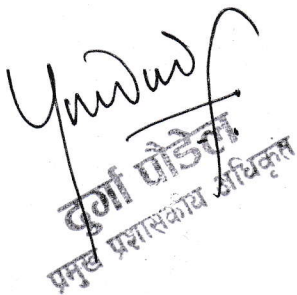 दुर्गा पौडेल
प्रमुख प्रशासकीय अधिकृत